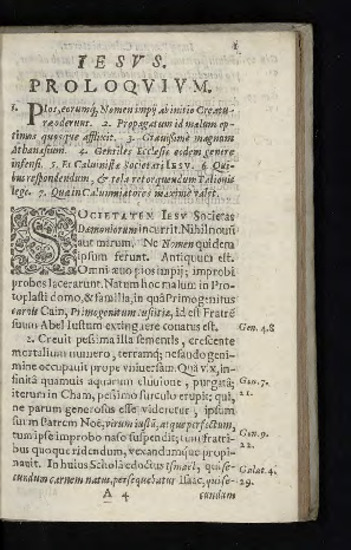 1
IESVS.
PROLOQVIVM.
1. PIos, eorumq; Nomen impij ab initio Creatu-
ræ oderunt. 2. Propagatum id malum op-
timos quosque afflixit. 3. Grauissimè magnum
Athanasium. 4. Gentiles Ecclesiæ eodem genere
infensi. 5. Et Calumnistæ Societati IESV. 6. Qui-
bus respondendum, & tela retorquenda Talionis
lege. 7. Quàm Calumniatores maximè valet.
SOCIETATEM IESV Societas
Dæmoniorum incurrit. Nihil noui
aut mirum. Ne Nomen quidem
ipsum ferunt. Antiquum est.
Omni æuo pios impij; improbi
probos lacerarunt. Natum hoc malum in Pro-
toplasti domo, & familia, in quâ Primogenitus
carnis Cain, Primogenitum iustitiæ, id est Fratrē
suum Abel Iustum extinguere conatus est.
Gen. 4.8
2. Creuit pessima illa sementis, crescente
mortalium numero, terramq; nefando geni-
mine occupauit prope vniuersam. Quâ vix, in-
finitâ quamuis aquarum eluuione, purgatâ;
Gen. 7.
iterum in Cham, pessimo surculo erupit; qui,
21.
ne parum generosus esse videretur, ipsum
suum Patrem Noë, virum iustū, atque perfectum,
tum ipse improbo naso suspendit; tum fratri-
Gen. 9.
bus quoque ridendum, vexandumque propi-
22.
nauit. In huius Scholâ edoctus Ismael, qui se-
Galat. 4.
cundum carnem natus, persequebatur Isaac, qui se-
29.
A 4
cundum